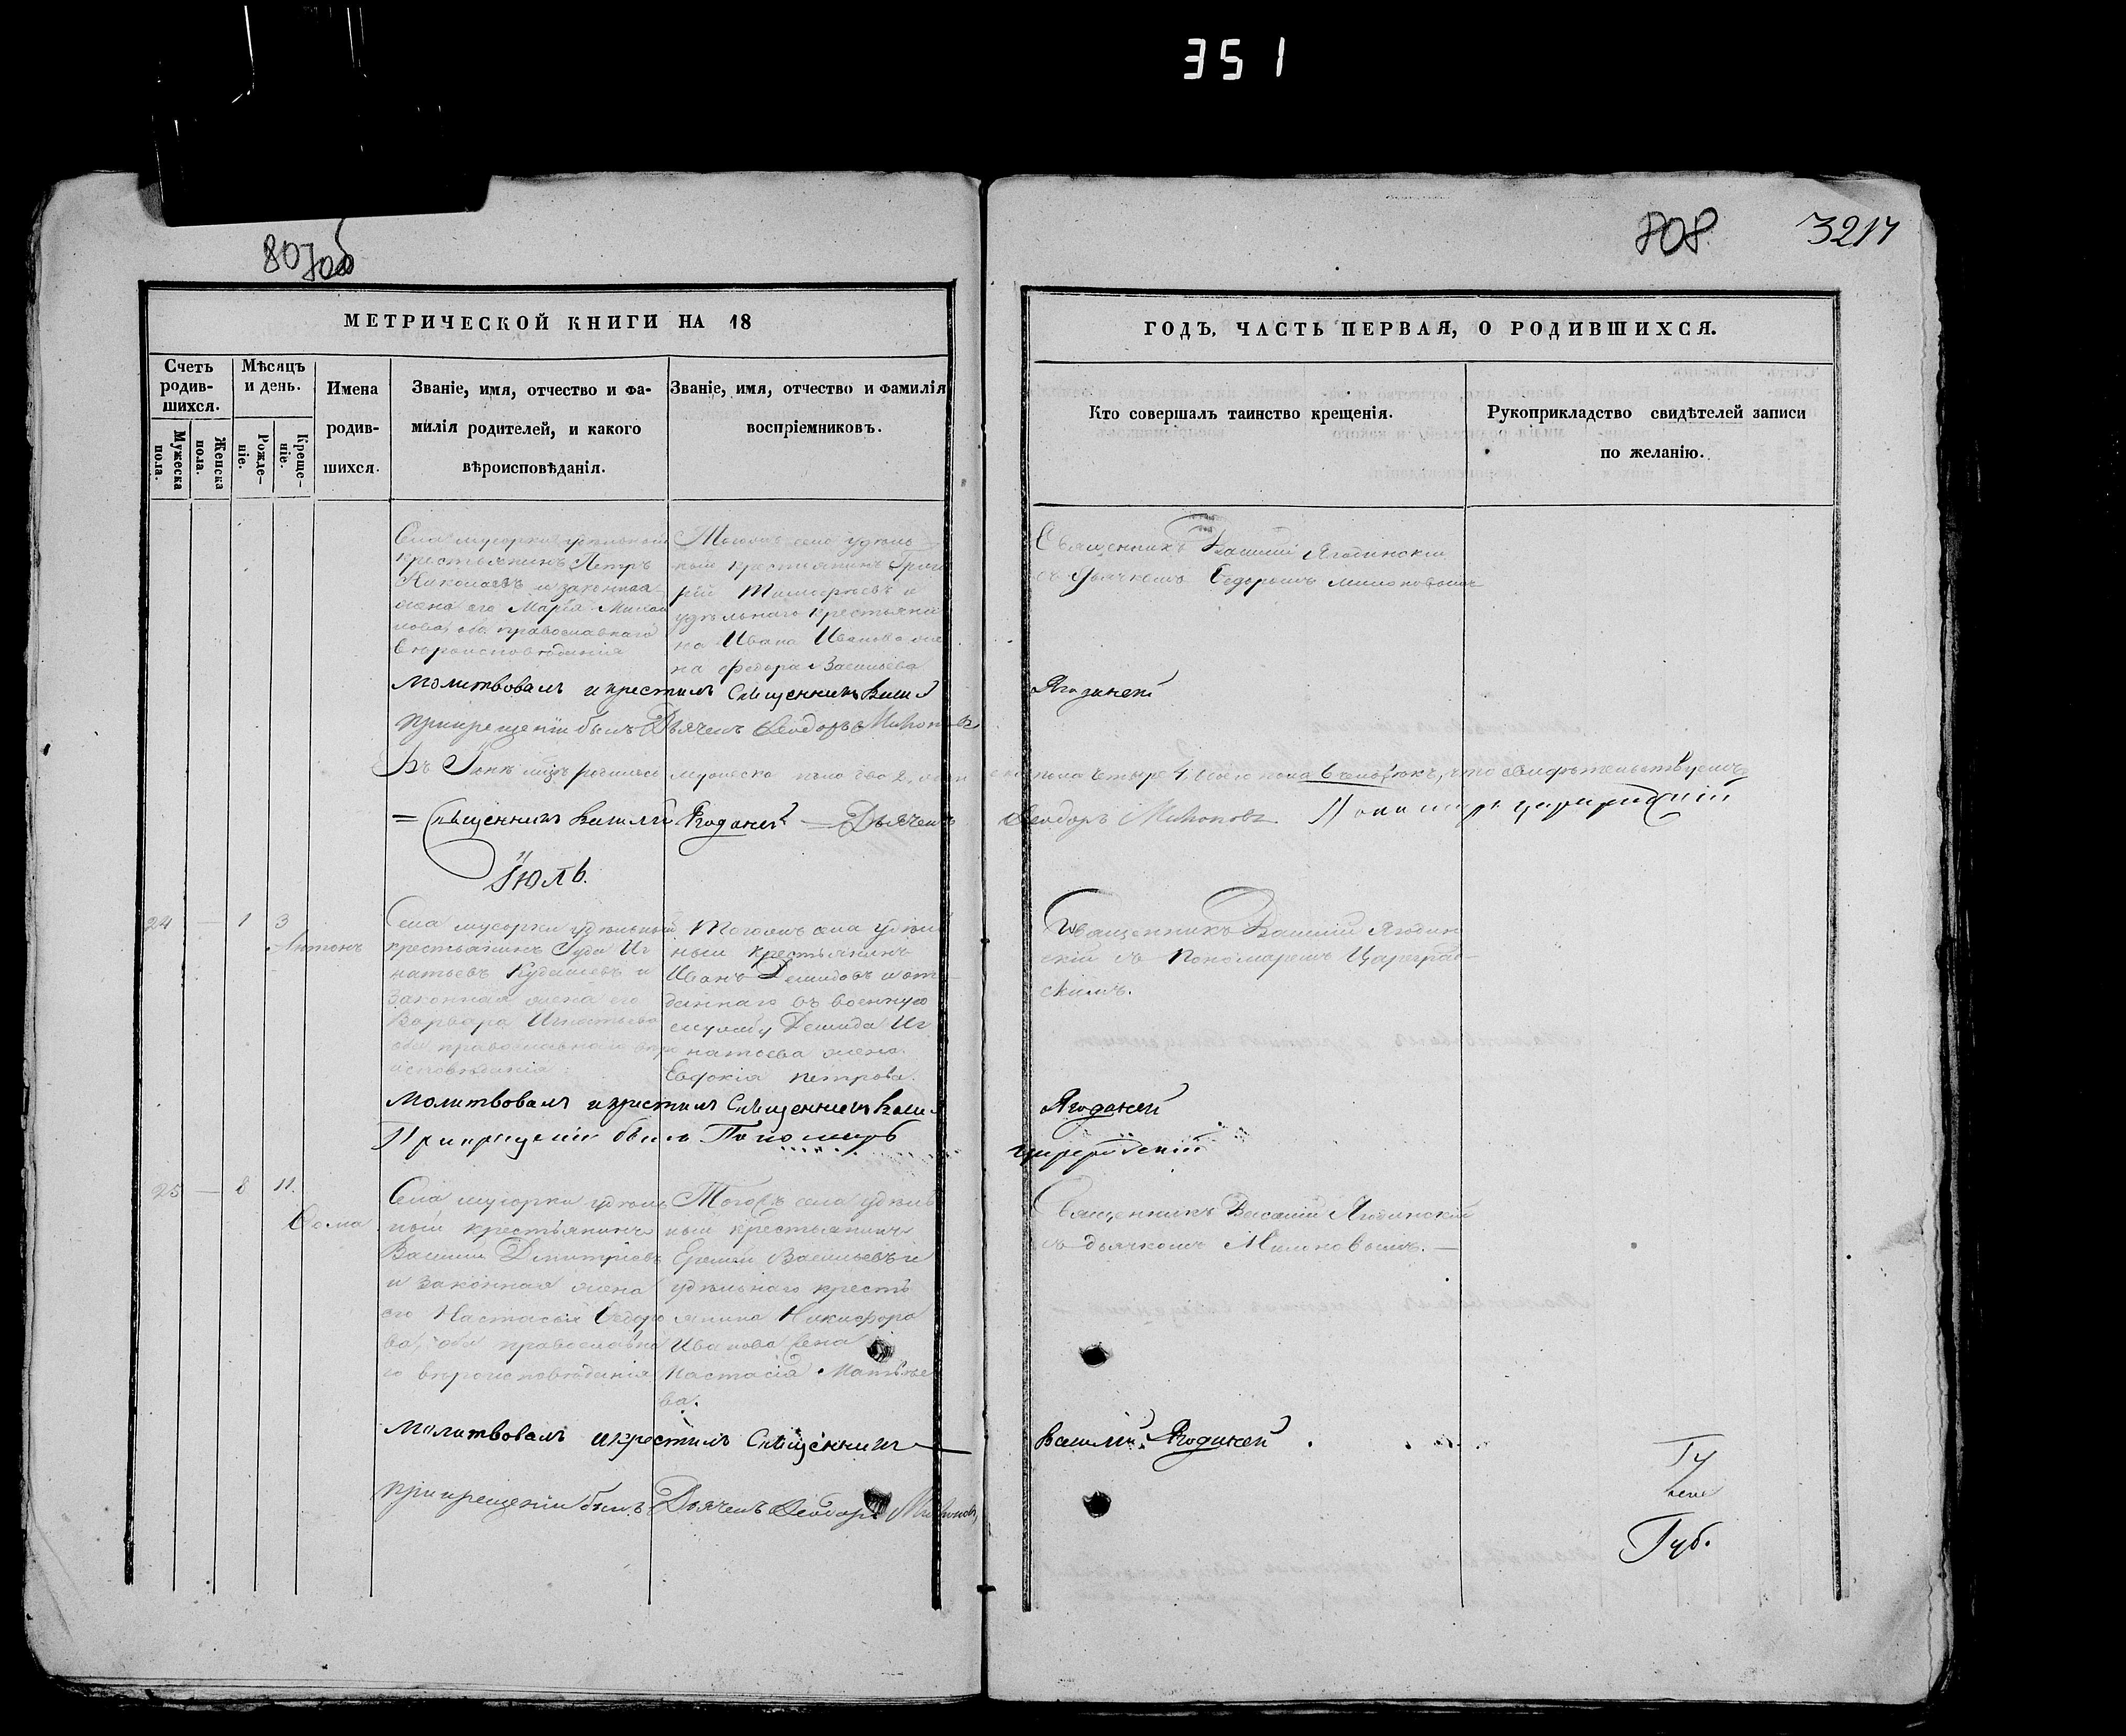 351
807об
808
3217
МЕТРИЧЕСКОЙ КНИГИ НА 18
ГОДЪ, ЧАСТЬ ПЕРВАЯ, О РОДИВШИХСЯ.
Счетъ родив-шихся.
Мужеска пола.
Женска пола.
Мѣсяцъ и день.
Рожде-ніе.
Креще-ніе.
Имена родив-шихся.
Званіе, имя, отчество и фа-
милія родителей, и какого
вѣроисповѣданія.
Званіе, имя, отчество и фамилія
воспріемниковъ.
Кто совершалъ таинство крещенія.
Рукоприкладство свидѣтелей записи
по желанію.
Села мусорки удѣльный
крестьянинъ Петръ
Николаевъ и законная
жена его Марѳа
оба православнаго
вѣроисповѣданія
Тогожъ села удѣль
ный крестьянинъ Григо
рій и
удѣльнаго крестьяни
на Ивана Иванова же
на Ѳедора Васильева
Священникъ Василій Ягодинскій
съ Дьячкомъ Ѳедоромъ
Молитвовалъ и крестилъ Священникъ Василій
Ягодинскій
При крещеніи былъ Дьячекъ Ѳеодоръ
Въ Іюнѣ родилось мужеска пола два 2, женска пола четыре 4, всего пола 6 человѣкъ, что свидѣтельствуемъ
= Священникъ Василій Ягодинскій = Дьячекъ
Ѳеодоръ Пономарь Цареградскій
Іюль.
24 — 1 3
Антонъ
Села мусорки удѣльный
крестьянинъ Иг
натьевъ и
законная жена его
Варвара Игнатьева
оба православнаго вѣро
исповѣданія
Тогожъ села удѣль
ный крестьянинъ
Иванъ Демидовъ и от
даннаго въ военную
службу Демида Иг
натьева жена
Евдокія Петрова.
Священникъ Василій Ягодин
скій съ Пономаремъ Цареград-
скимъ.
Молитвовалъ и крестилъ Священникъ Василій
Ягодинскій
При крещеніи былъ Пономарь
Цареградскій
25 — 8 11.
Ѳома
Села мусорки удѣль
ный крестьянинъ
Василій Дмитріевъ
и законная жена
его Настасья Ѳедоро
ва, оба православна
го вѣроисповѣданія
Тогожъ села удѣль
ный крестьянинъ
Васильевъ и
удѣльнаго кресть
янина Никифора
Иванова жена
Настасія Матвѣе
ва.
Священникъ Василій Ягодинскій
съ дьячкомъ
Молитвовалъ и крестилъ Священникъ
Василій Ягодинскій
При крещеніи былъ Дьячекъ Ѳеодоръ
Губ.